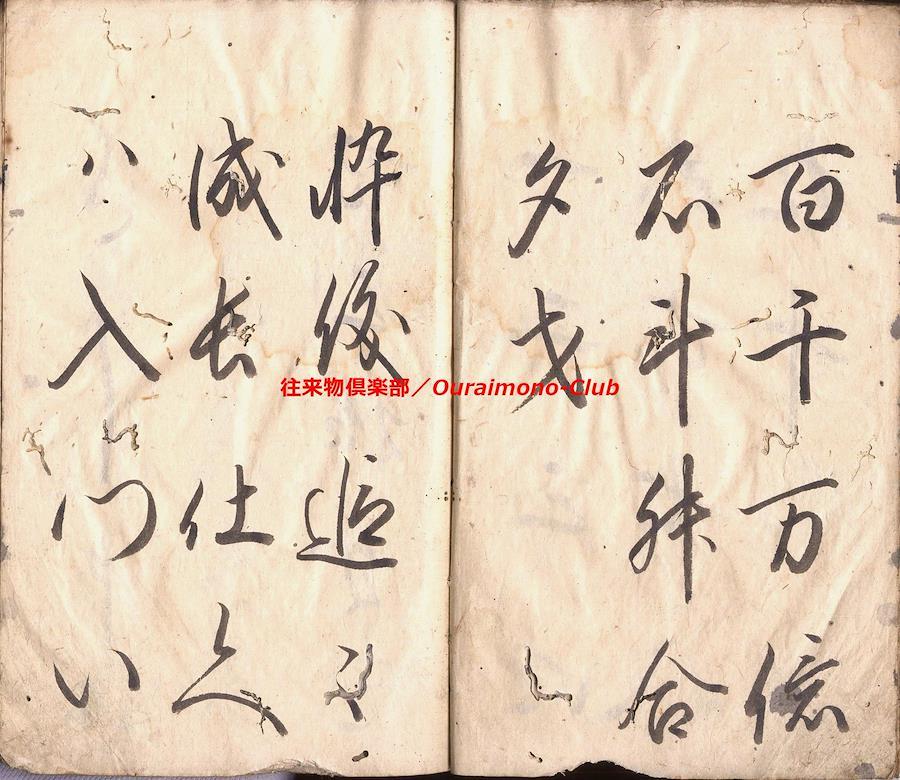 百千万億
石斗升合
夕才
忰儀追々
成長仕
ハ入門い
往来物倶楽部／Ouraimono-Club